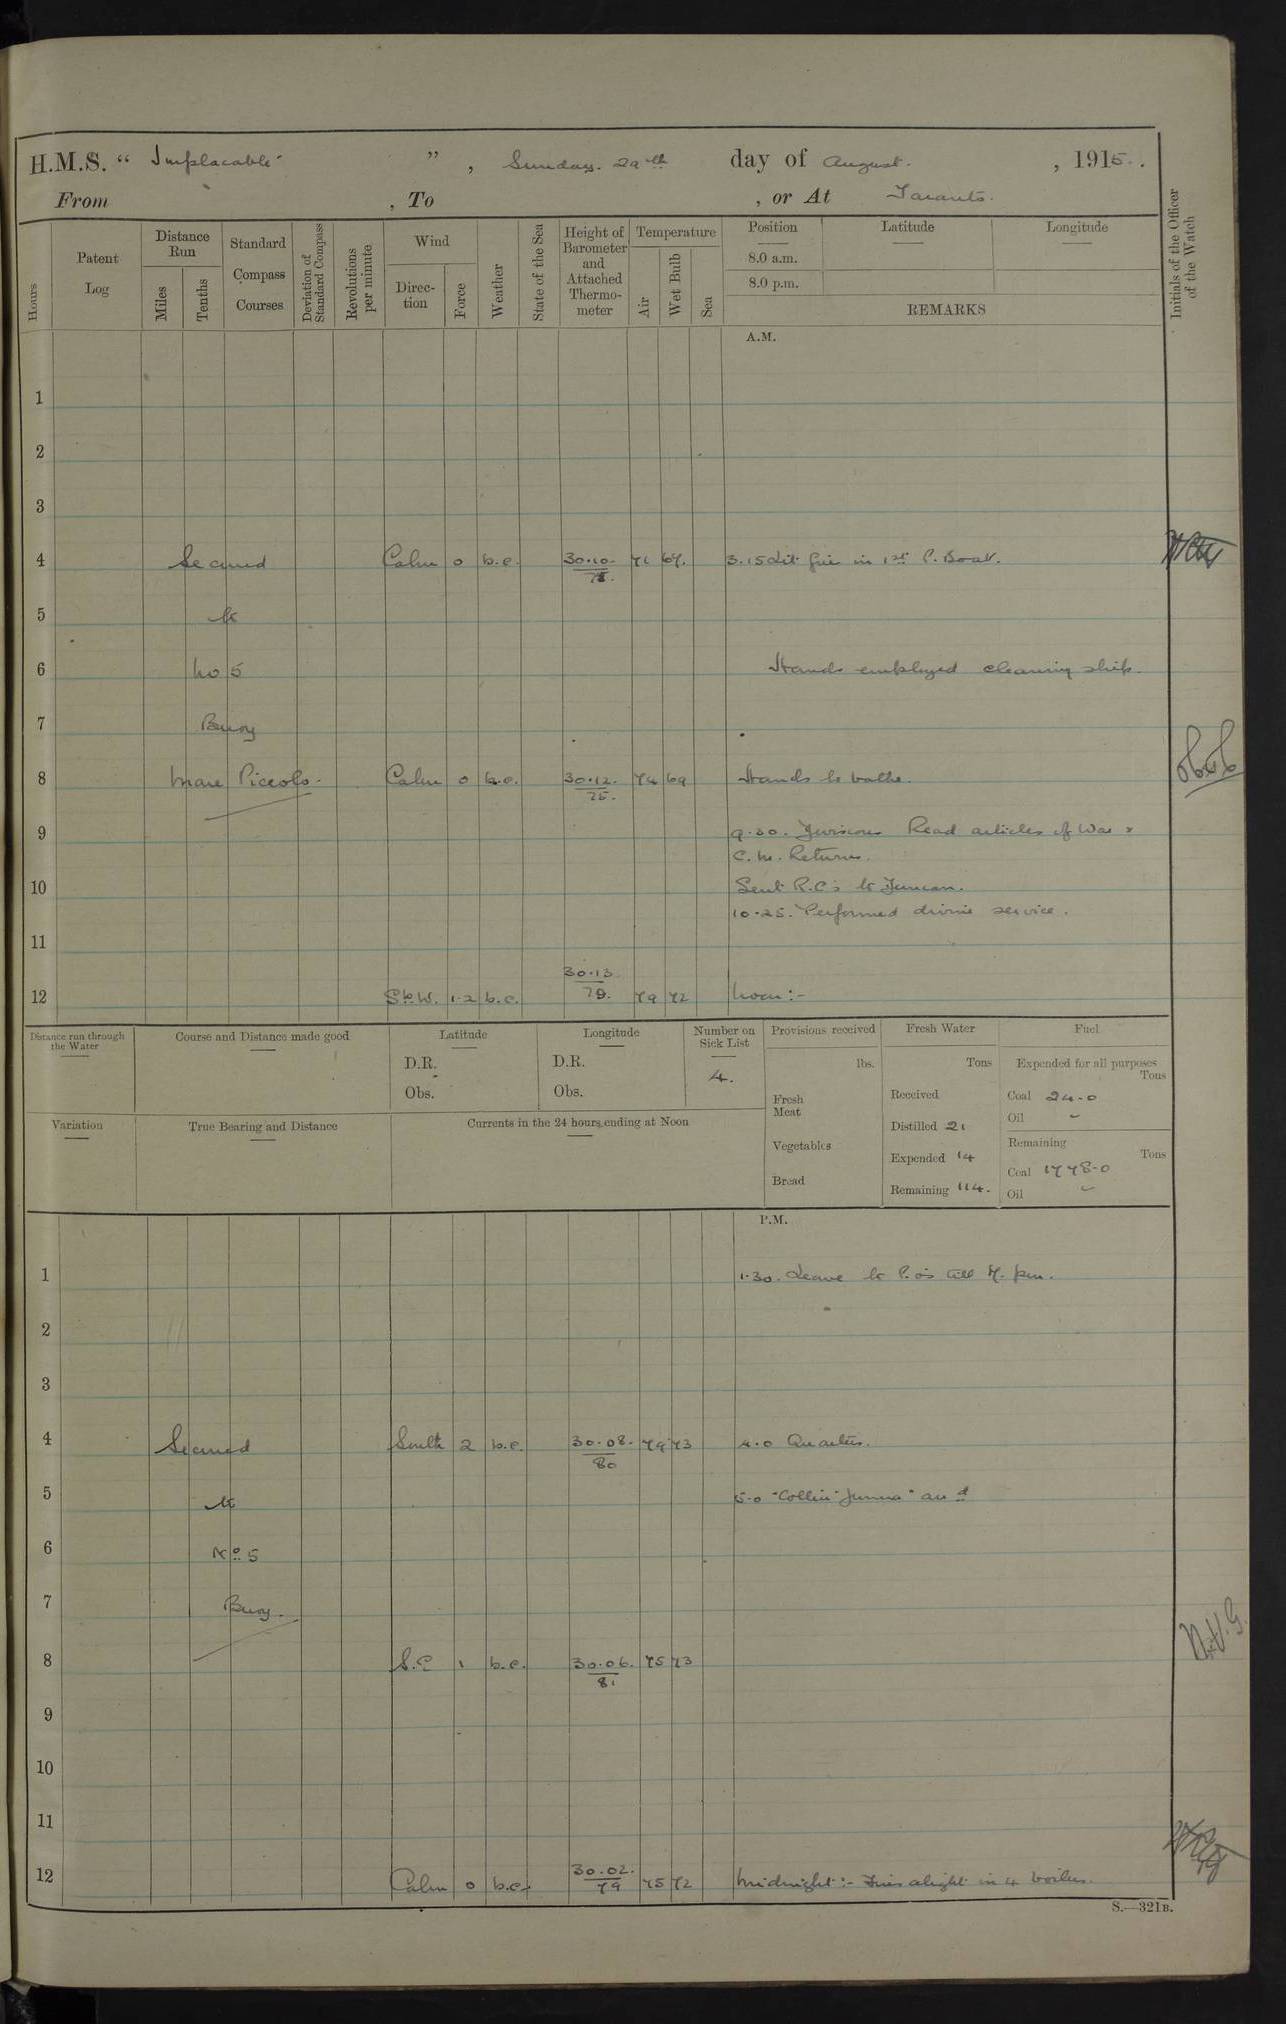 H.M.S. “ Implacable ” , Sunday. 29th day of August. , 1915.
From , To , or At Taranto.
Hours
Patent Log
Distance Run
Miles
Tenths
Standard Compass Courses
Deviation of Standard Compass
Revolutions per minute
Wind
Direction
Force
Weather
State of the Sea
Height of Barometer and Attached Thermometer
Temperature
Air
Wet Bulb
Sea
Position
8.0 a.m.
8.0 p.m.
Latitude
Longitude
REMARKS
Initials of the Officer of the Watch
A.M.
1
2
3
4 Secured Calm 0 b.c. 30.10. 71 67. 3.15 Lit fire in 1st P. Boat.
5 to
6 No 5 Hands employed cleaning ship.
7 Buoy
8 Mare Piccolo. Calm 0 b.c. 30.12. 75. 74 69 Hands to bathe.
9 9.30. Divisions Read articles of War &
C.M. Returns.
10 Sent R.C's to Duncan.
10.25. Performed divine service.
11
12 SbW. 1.2 b.c. 30.13 79. 79 72 Noon :-
Distance run through the Water
Course and Distance made good
Latitude
D.R.
Obs.
Longitude
D.R.
Obs.
Number on Sick List
4.
Provisions received
lbs.
Fresh Meat
Vegetables
Bread
Fresh Water
Tons
Received
Distilled 21
Expended 14
Remaining 114.
Fuel
Expended for all purposes
Tons
Coal 24.0
Oil -
Remaining
Tons
Coal 1778.0
Oil -
Variation
True Bearing and Distance
Currents in the 24 hours ending at Noon
P.M.
1 1.30. Leave to P.O's till 7. pm.
2
3
4 Secured South 2 b.c. 30.08. 80 79 73 4.0 Quarters.
5 to 5.0 "Collier" " arrd
6 No 5
7 Buoy.
8 S.E 1 b.c. 30.06. 81 75 73
9
10
11
12 Calm 0 b.c. 30.02. 79 75 72 Midnight :- Fires alight in 4 boilers.
S.—321B.